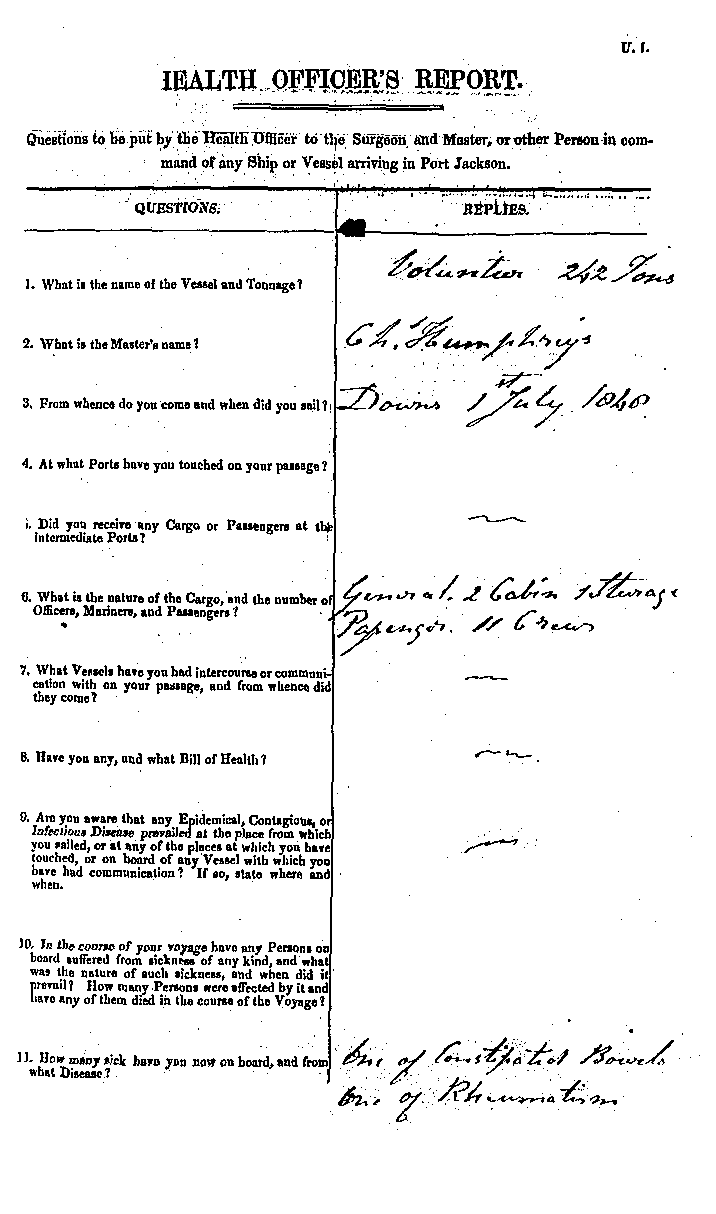 U. 1.
IEALTH OFFICER'S REPORT.
Questions to be put by the Health Officer to the Surgeon and Master, or other Person in com-
mand of any Ship or Vessel arriving in Port Jackson.
QUESTIONS.
REPLIES.
1. What is the name of the Vessel and Tonnage?
Volunteer 242 Tons
2. What is the Master's name?
Ch. Humphreys
3. From whence do you come and when did you sail?
Downs 1st July 1840
4. At what Ports have you touched on your passage?
5. Did you receive any Cargo or Passengers at the
intermediate Ports?
6. What is the nature of the Cargo, and the number of
Officers, Mariners, and Passengers?
General. 2 Cabin 1 Sterage
Passenger. 11 Crew
7. What Vessels have you had intercourse or communi-
cation with on your passage, and from whence did
they come?
8. Have you any, and what Bill of Health?
9. Are you aware that any Epidemical, Contagious, or
Infectious Disease prevailed at the place from which
you sailed, or at any of the places at which you have
touched, or on board of any Vessel with which you
have had communication? If so, state where and
when.
10. In the course of your voyage have any Persons on
board suffered from sickness of any kind, and what
was the nature of such sickness, and when did it
prevail? How many Persons were affected by it and
have any of them died in the course of the Voyage?
11. How many sick have you now on board, and from
what Disease?
One of Constipated Bowels
One of Rheumatism